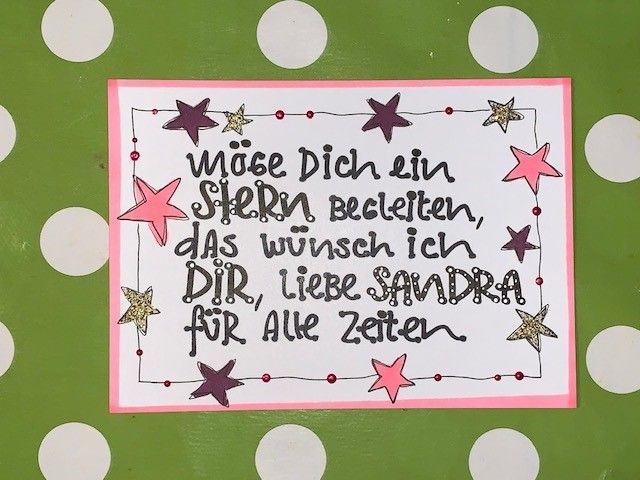 Möge Dich ein
STERN begleiten,
das wünsch ich
DIR, liebe SANDRA
für alle Zeiten